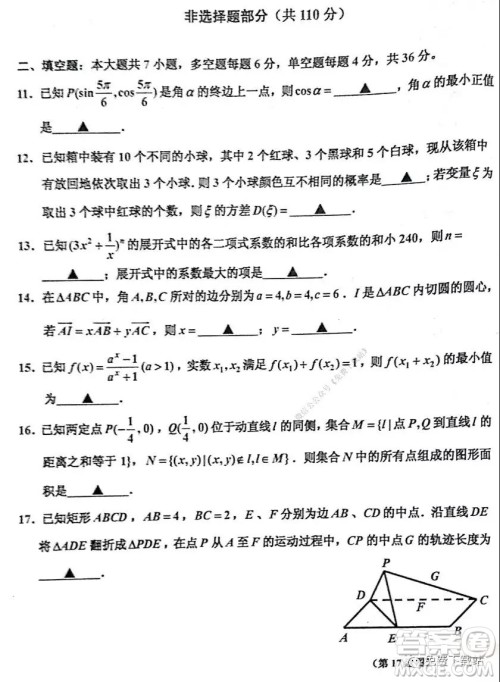 非选择题部分（共 110 分）
二、填空题：本大题共 7 小题，多空题每题 6 分，单空题每题 4 分，共 36 分。
11．已知P(sin5π/6,cos5π/6)是角α的终边上一点，则cosα=▲，角α的最小正值
是▲．
12．已知箱中装有 10 个不同的小球，其中 2 个红球、3 个黑球和 5 个白球，现从该箱中
有放回地依次取出 3 个小球．则 3 个小球颜色互不相同的概率是▲；若变量ξ为
取出 3 个球中红球的个数，则ξ的方差D(ξ)=▲．
13．已知(3x²+1/x)ⁿ的展开式中的各二项式系数的和比各项系数的和小 240，则 n=
▲；展开式中的系数最大的项是▲．
14．在△ABC中，角A,B,C所对的边分别为a=4,b=4,c=6．I是△ABC内切圆的圆心，
若AI=xAB+yAC，则x=▲；y=▲．
15．已知f(x)=(aˣ-1)/(aˣ+1)(a>1)，实数x₁,x₂满足f(x₁)+f(x₂)=1，则f(x₁+x₂)的最小值
为▲．
16．已知两定点P(-1/4,0)，Q(1/4,0)位于动直线l的同侧，集合M={l|点P,Q到直线l的
距离之和等于1}，N={(x,y)|(x,y)∉l,l∈M}．则集合N中的所有点组成的图形面
积是▲．
17．已知矩形ABCD，AB=4，BC=2，E、F分别为边AB、CD的中点．沿直线DE
将△ADE翻折成△PDE，在点P从A至F的运动过程中，CP的中点G的轨迹长度为
▲．
P
G
D
F
C
A
E
B
（第 17